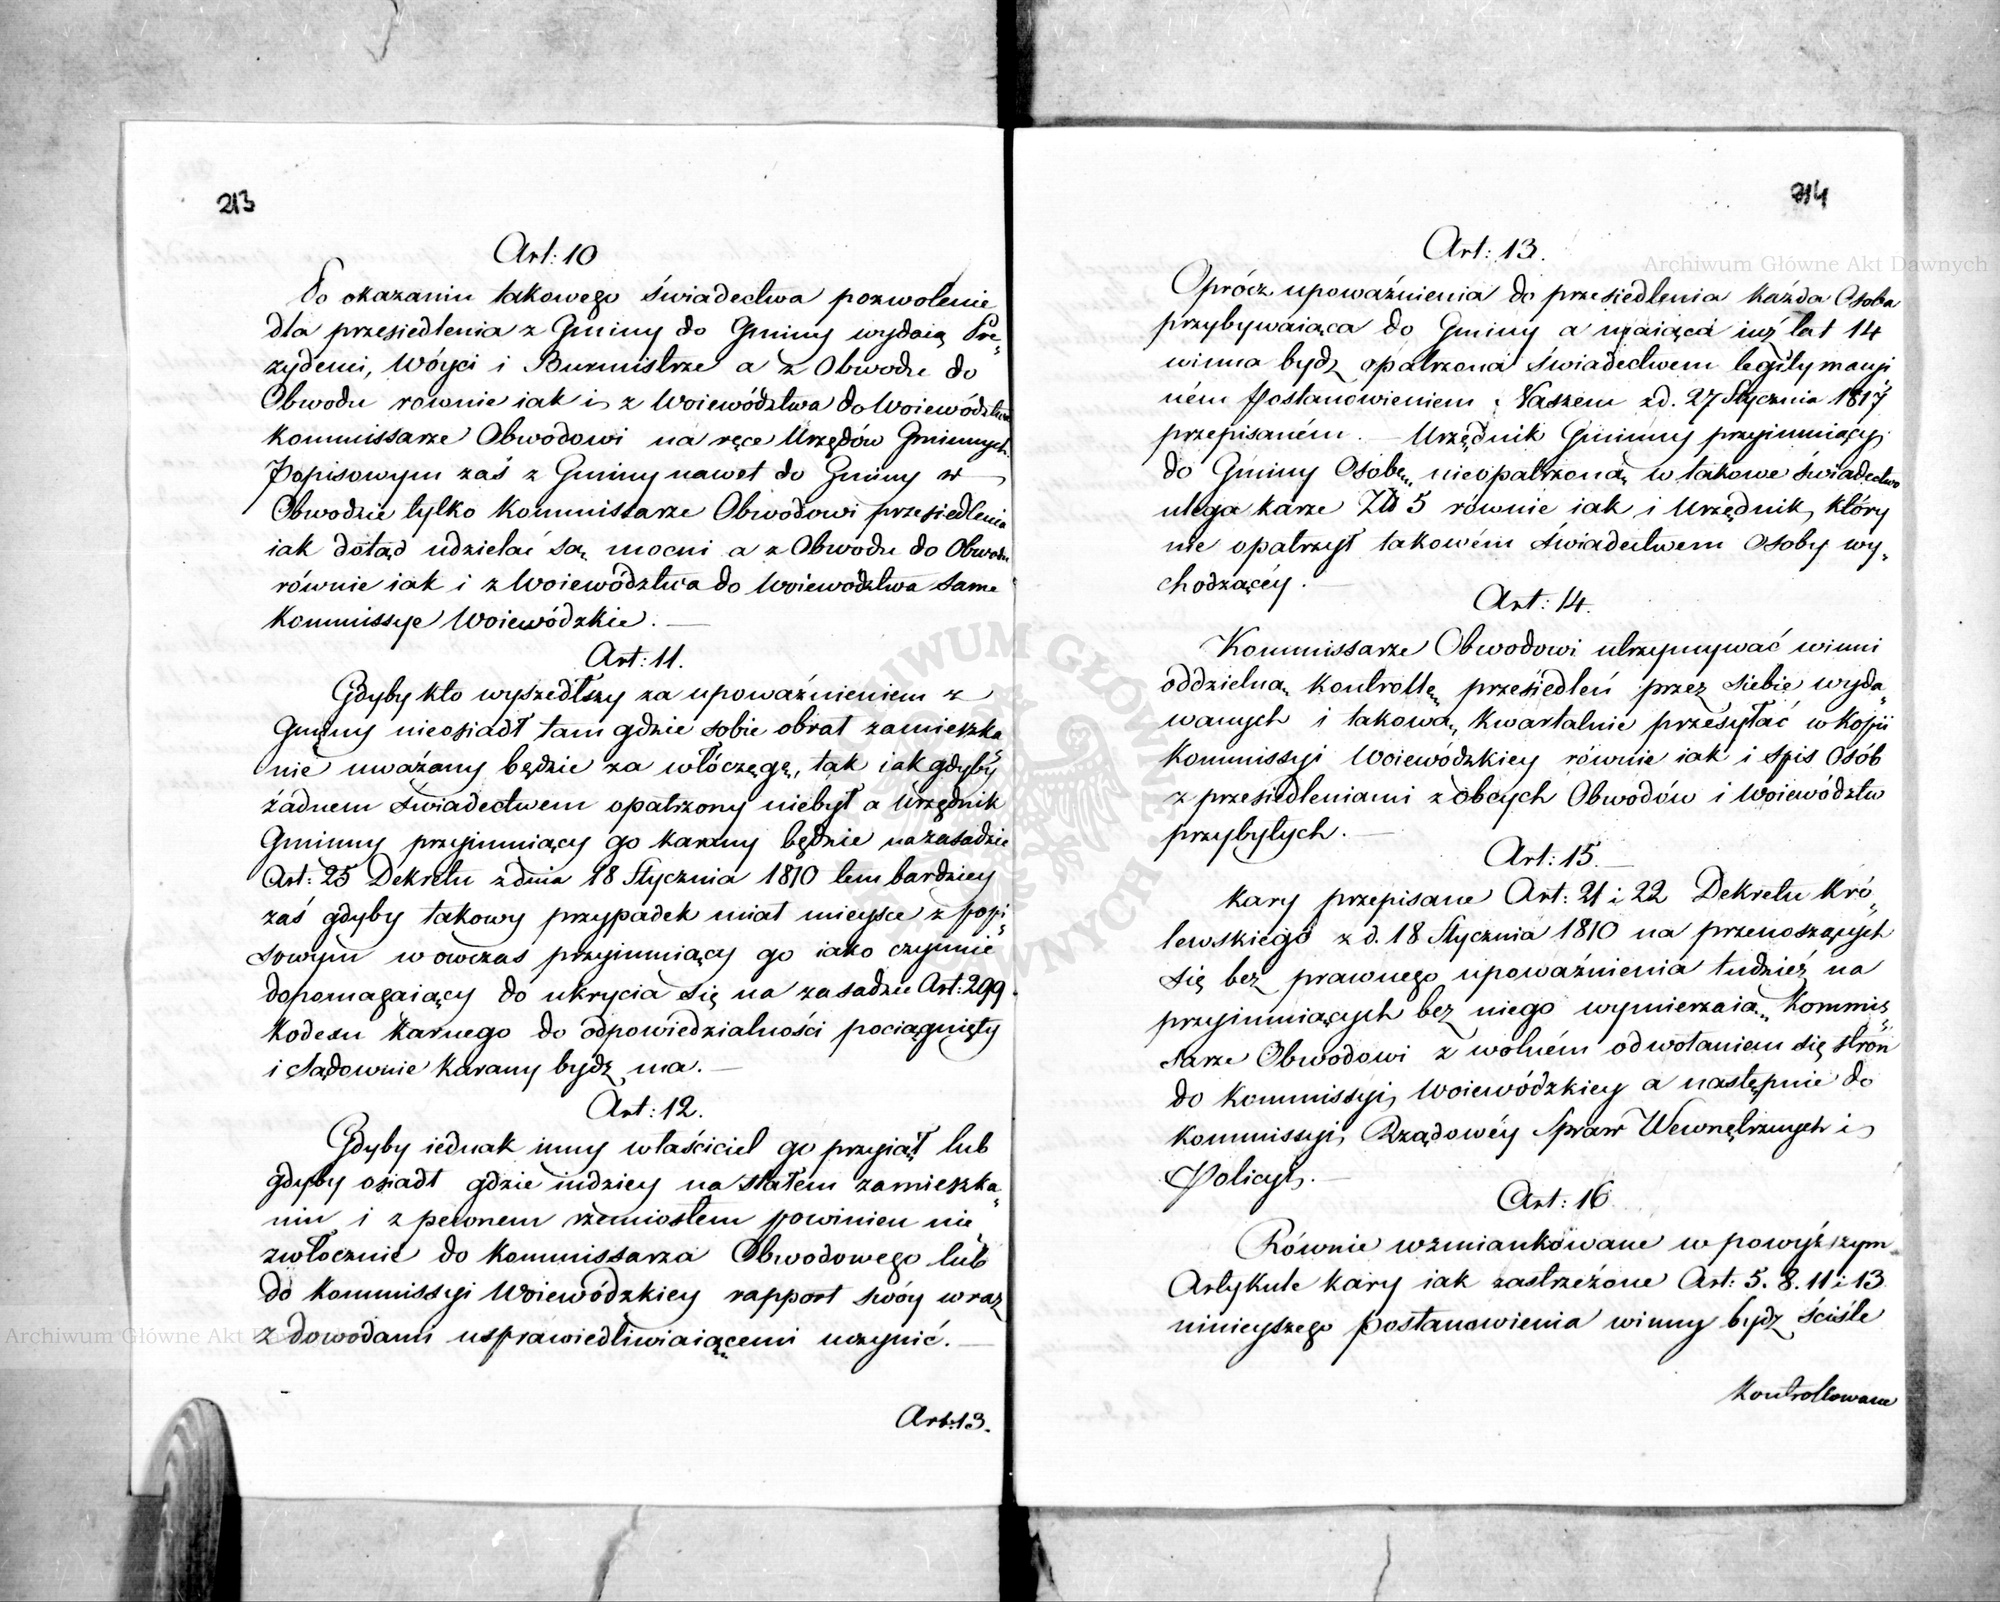 213
Art: 10
Po okazaniu takowego świadectwa pozwolenie
dla przesiedlenia z Gminy do Gminy wydaią Pre„
zydenci, Wóyci i Burmistrze a z Obwodu do
Obwodu równie iak i z Województwa do Województwa
Kommissarze Obwodowi na ręce Urzędów Gminnych.
Popisowym zaś z Gminy nawet do Gminy w
Obwodzie tylko Kommissarze Obwodowi przesiedlenia
iak dotąd udzielać są mocni a z Obwodu do Obwodu
równie iak i z Woiewództwa do Woiewództwa same
Kommissye Woiewódzkie. —
Art: 11.
Gdyby kto wyszedłszy za upoważnieniem z
Gminy nieosiadł tam gdzie sobie obrał zamieszka„
nie uważany będzie za włóczęgę, tak iak gdyby
żadnem świadectwem opatrzony niebył a Urzędnik
Gminny przyimuiący go karany będzie na zasadzie
Art: 25 Dekretu z dnia 18 Stycznia 1810 tem bardziey
zaś gdyby takowy przypadek miał mieysce z popi„
sowym wówczas przyimuiący go iako czynnie
dopomagaiący do ukrycia się na zasadzie Art: 299.
Kodexu Karnego do odpowiedzialności pociągnięty
i sądownie karany bydz ma. —
Art: 12.
Gdyby iednak inny właściciel go przyiął lub
gdyby osiadł gdzie indziey na stałem zamieszka„
niu i z pewnem rzemiosłem powinien nie„
zwłocznie do Kommissarza Obwodowego lub
do Kommissyi Woiewódzkiey rapport swóy wraz
z dowodami usprawiedliwiaiącemi uczynić. —
Art: 13.
214
Art: 13.
Oprócz upoważnienia do przesiedlenia każda Osoba
przybywaiąca do Gminy a maiąca iuż lat 14
winna bydz opatrzona świadectwem legitymacyi
ném Postanowieniem Naszem z d. 27 Stycznia 1817
przepisaném. — Urzędnik Gminny przyimuiący
do Gminy Osobę nieopatrzoną w takowe świadectwo
ulega karze Złł 5 równie iak i Urzędnik, który
nie opatrzył takowém świadectwem Osoby wy„
chodzącéy. —
Art: 14.
Kommissarze Obwodowi utrzymywać winni
oddzielną kontrollę przesiedleń przez siebie wyda„
wanych i takową kwartalnie przesyłać w Kopii
Kommissyi Woiewódzkiey równie iak i spis Osób
z przesiedleniami z obcych Obwodów i Woiewództw
przybyłych. —
Art: 15. —
Kary przepisane Art: 21 i 22 Dekretu Kró„
lewskiego z d. 18 Stycznia 1810 na przenoszących
się bez prawnego upoważnienia tudzież na
przyimuiących bez niego wymierzaią Kommis„
sarze Obwodowi z wolném odwołaniem się stron
do Kommissyi Woiewódzkiey a następnie do
Kommissyi Rządowéy Spraw Wewnętrznych i
Policyi. —
Art: 16.
Równie wzmiankowane w powyższym
Artykule kary iak zastrzeżone Art: 5. 8. 11 i 13
ninieyszego postanowienia winny bydz ściśle
Kontrollowane
Archiwum Główne Akt Dawnych
Archiwum Główne Akt